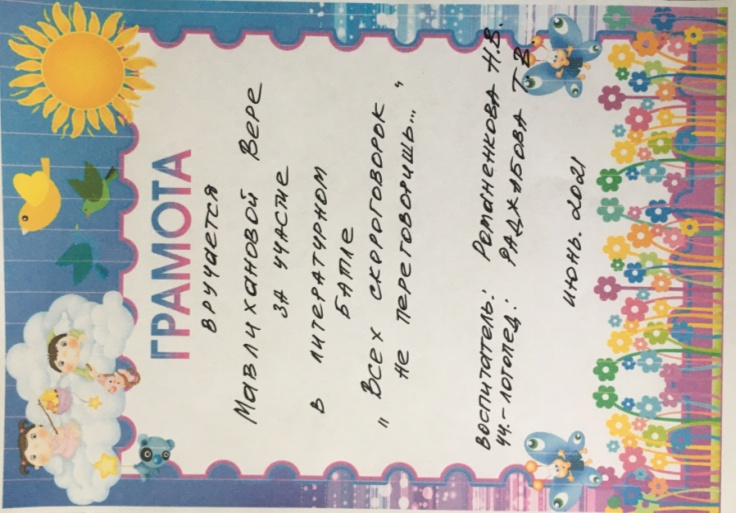 ГРАМОТА
вручается
Мавлихановой Вере
за участие
в литературном
батле
"Всех скороговорок
не переговоришь..."
воспитатель: Романенкова Н.В.
уч.-логопед: Раджабова Т.В
июнь. 2021